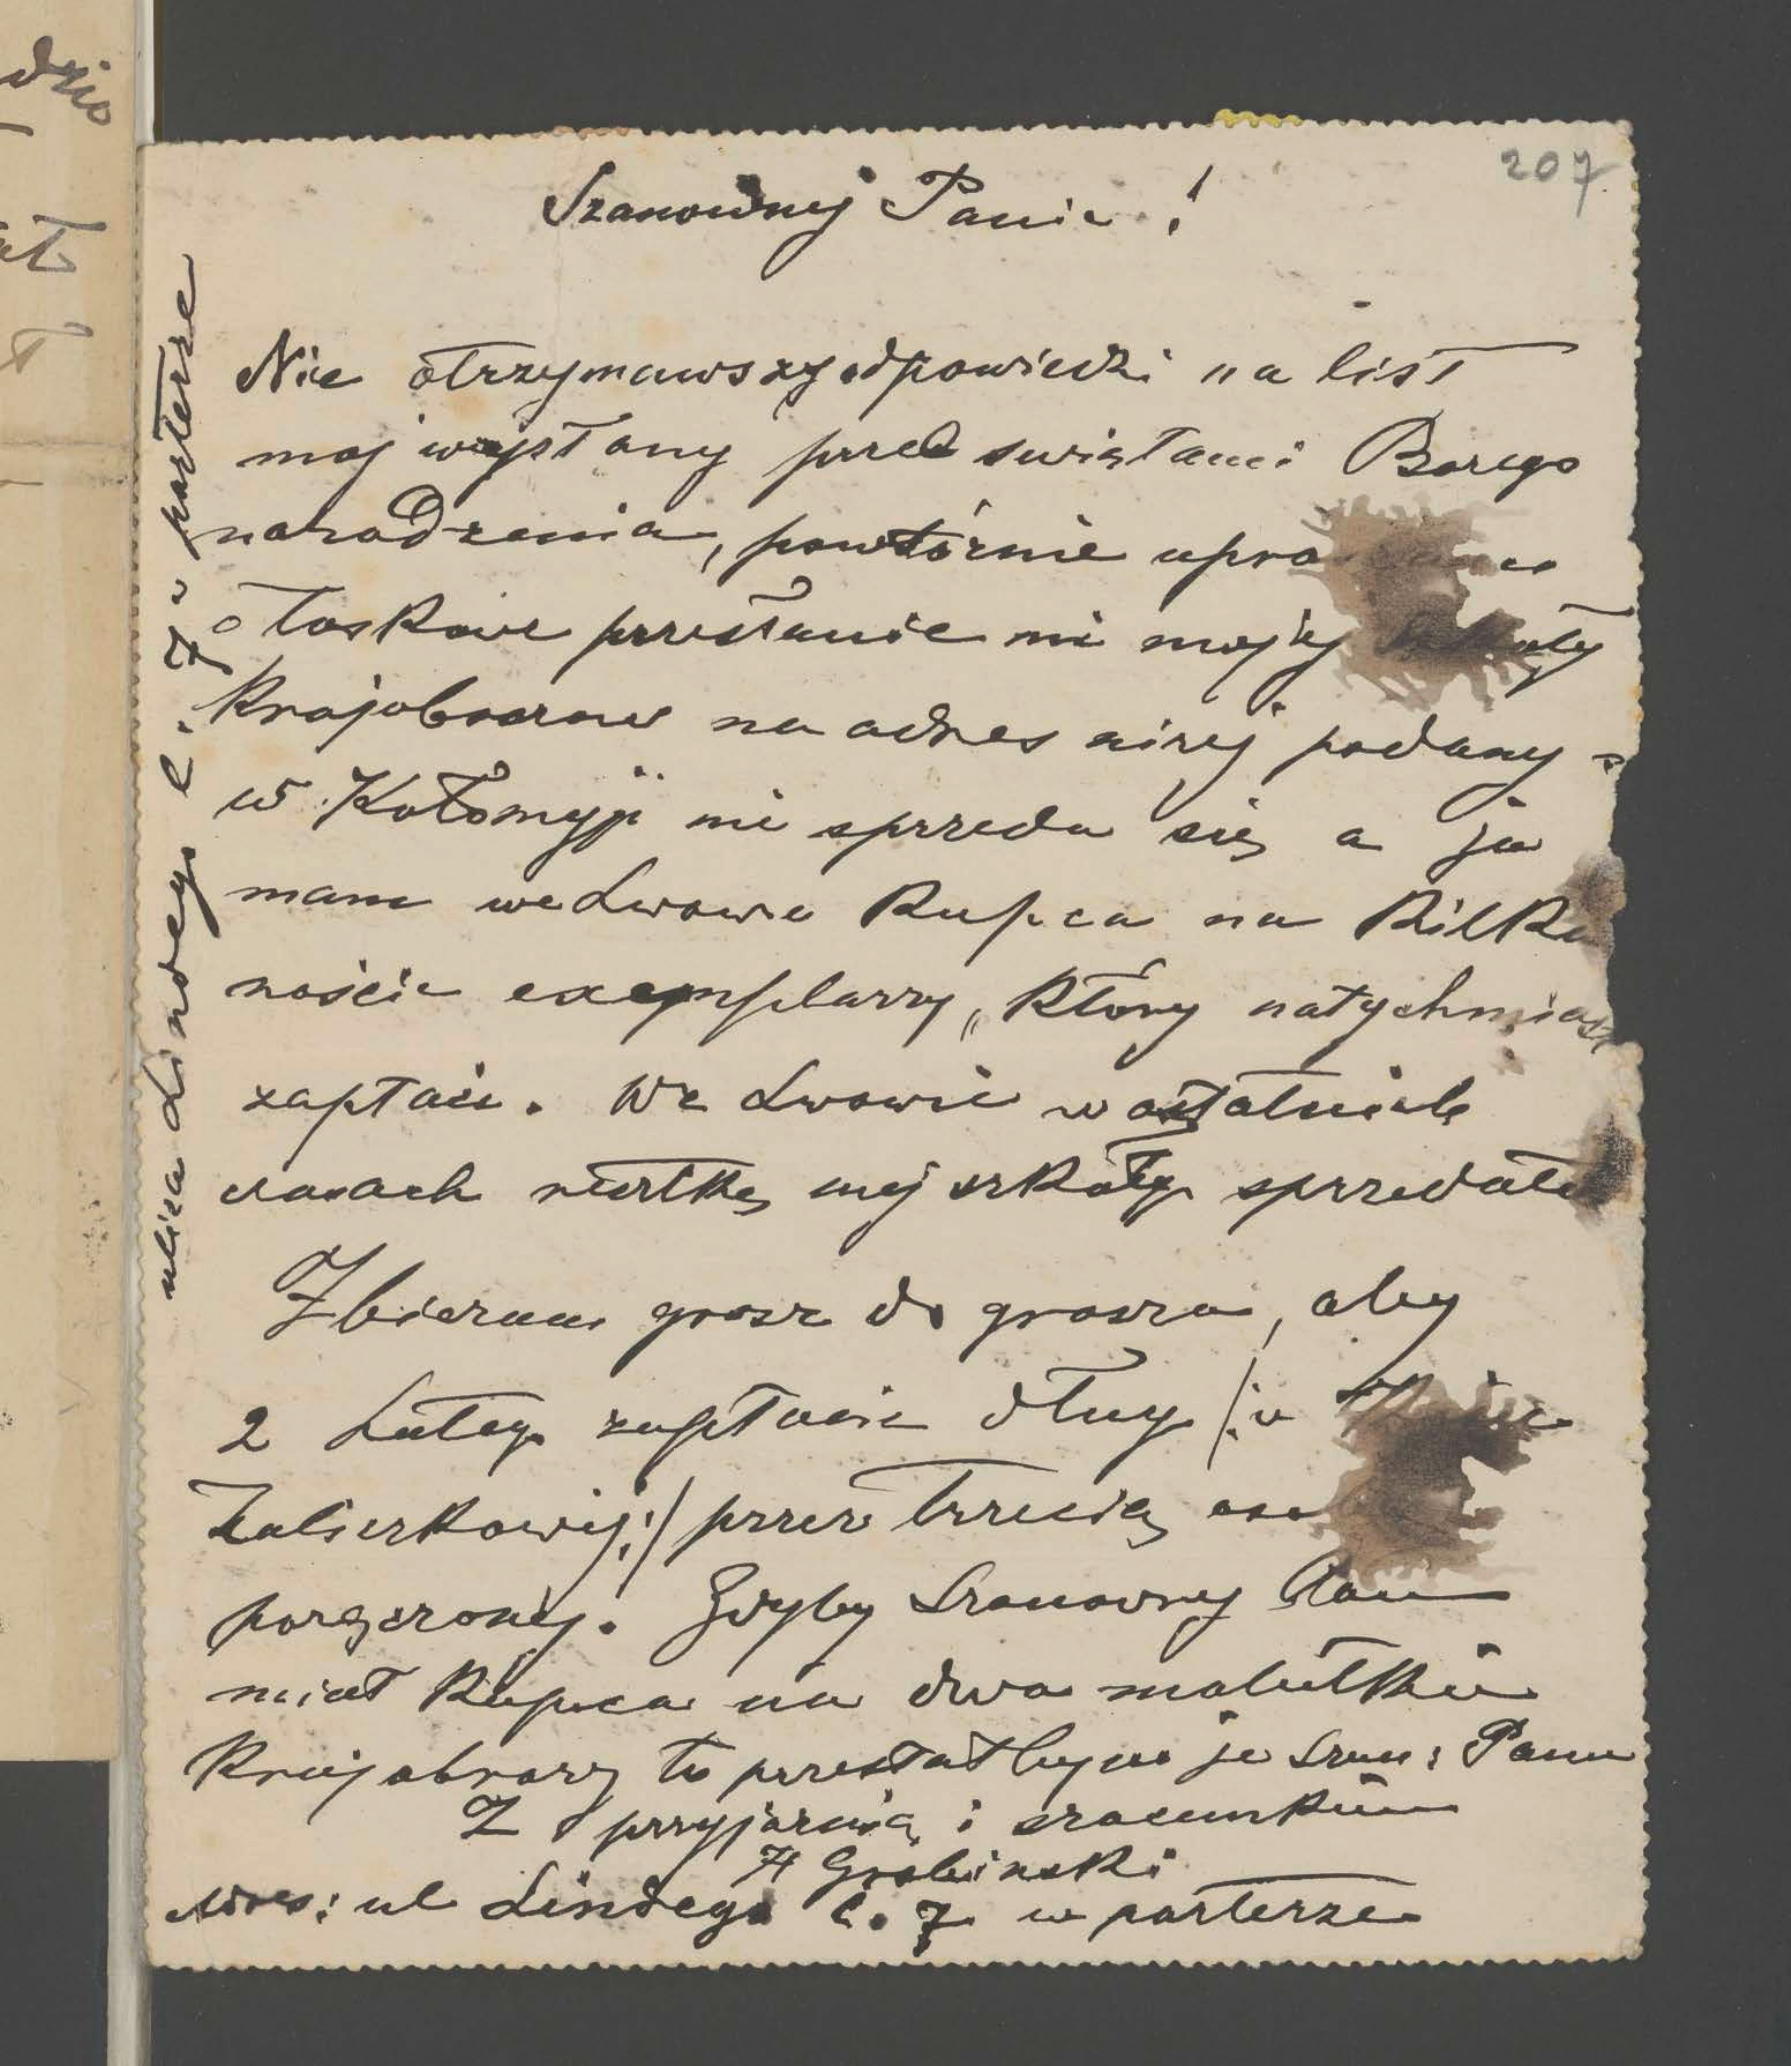 207
Szanowny Panie !
Nie otrzymawszy odpowiedzi na list
moj wysłany przed swiętami Bożego
narodzenia, powtórnie
o łaskawe przesłanie mi mojej
Krajobrazow na adres niżej podany
w Kołomyji nie sprzeda się a ja
mam we Lwowie Kupca na Kilka
naście exemplarzy, Który natychmiast
zapłaci. We Lwowie w ostatnich
czasach resztkę mej szkoły sprzedałem
Zbieram grosz do grosza, aby
2 Lutego zapłacić długi /:u
Zaliczkowej:/ przez trzecią
poręczony. Gdyby Szanowny Pan
miał Kupca na dwa malutkie
Krajobrazy to przesłałbym je Szan: Panu
Z przyjaźnią i szacunkiem
H Grabinski
Adres: ul Lindego l. 7 w parterze
ulica Lindego l. 7 w parterze
dzio